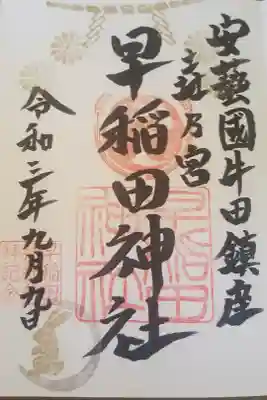 安藝國牛田鎮座
早稲田神社
令和三年九月九日